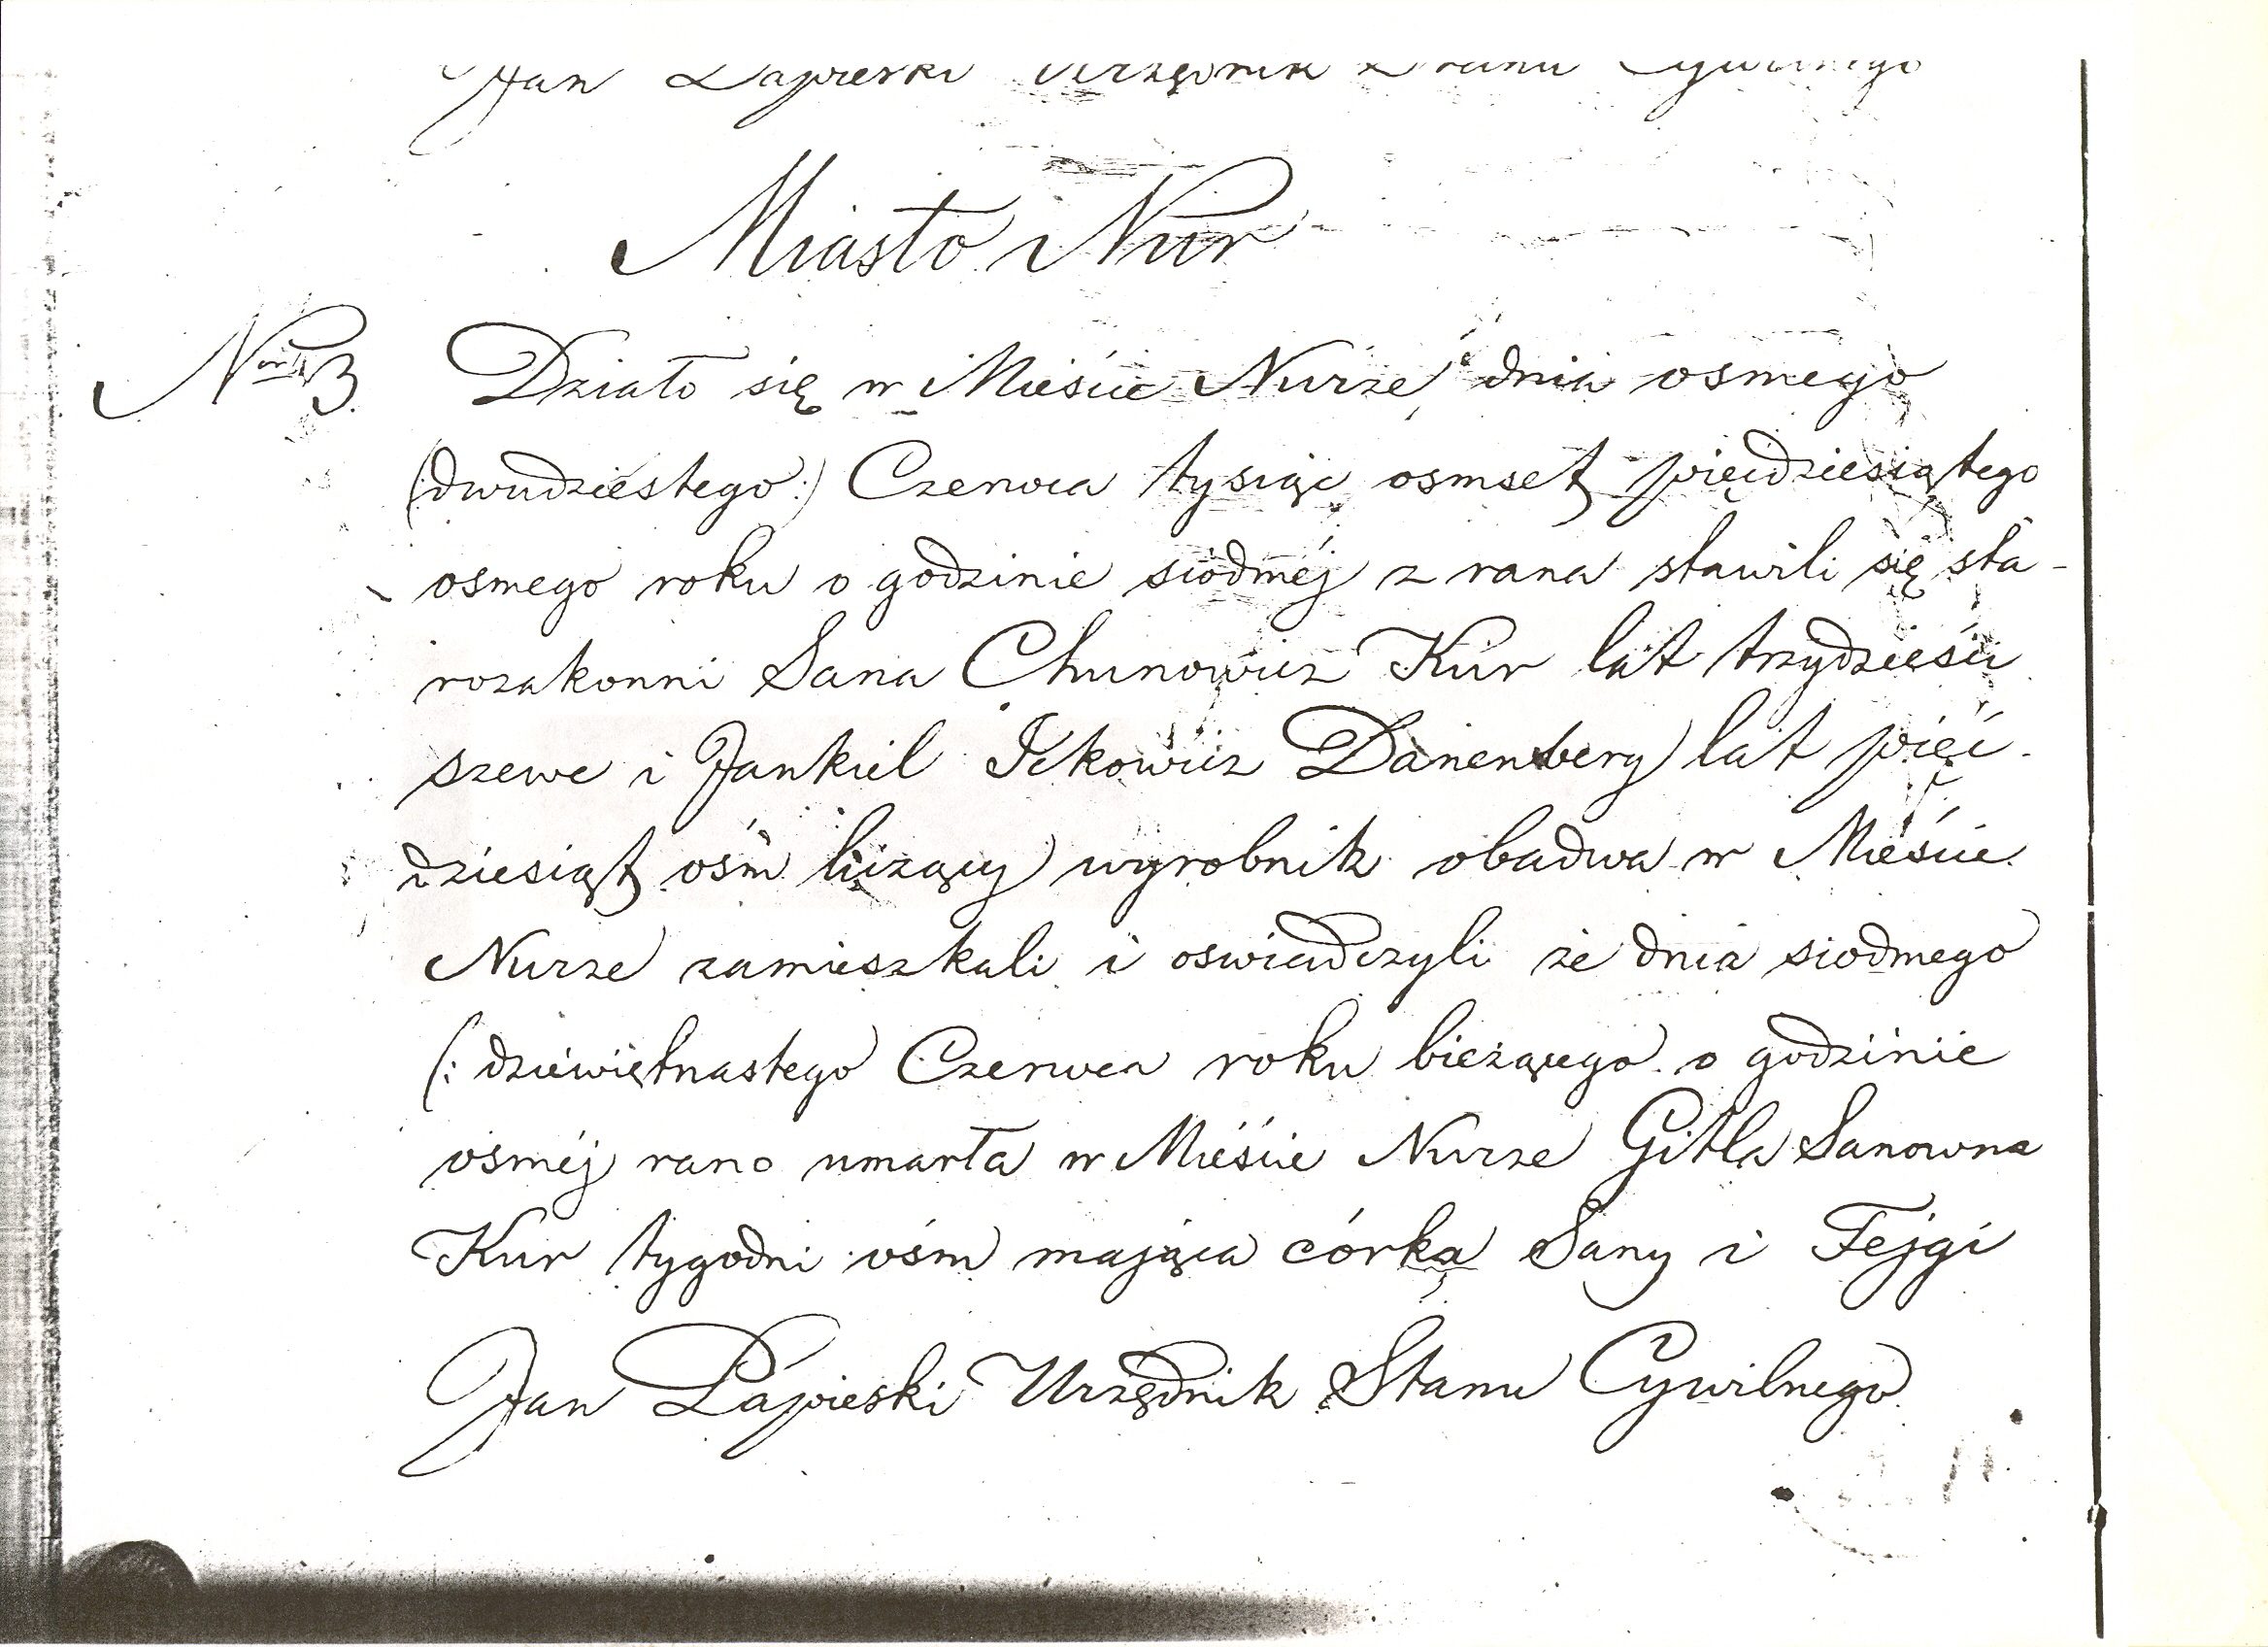 Jan Łapieski Urzędnik Stanu Cywilnego
Miasto Nur
Nor 3.
Działo się w Mieście Nurze, dnia osmego
(dwudziestego:) Czerwca tysiąc osmset pięćdziesiątego
osmego roku o godzinie siódméj z rana stawili się sta-
rozakonni Sana Chunowicz Kur lat trzydzieści
szewc i Jankiel Ickowicz Danenberg lat pięć-
dziesiąt ośm liczący wyrobnik obadwa w Mieście
Nurze zamieszkali i oswiadczyli że dnia siodmego
(: dziewiętnastego Czerwca roku bieżącego o godzinie
osméj rano umarła w Mieście Nurze Gitla Sanowna
Kur tygodni ośm mająca córka Sany i Fejgi
Jan Łapieski Urzędnik Stanu Cywilnego